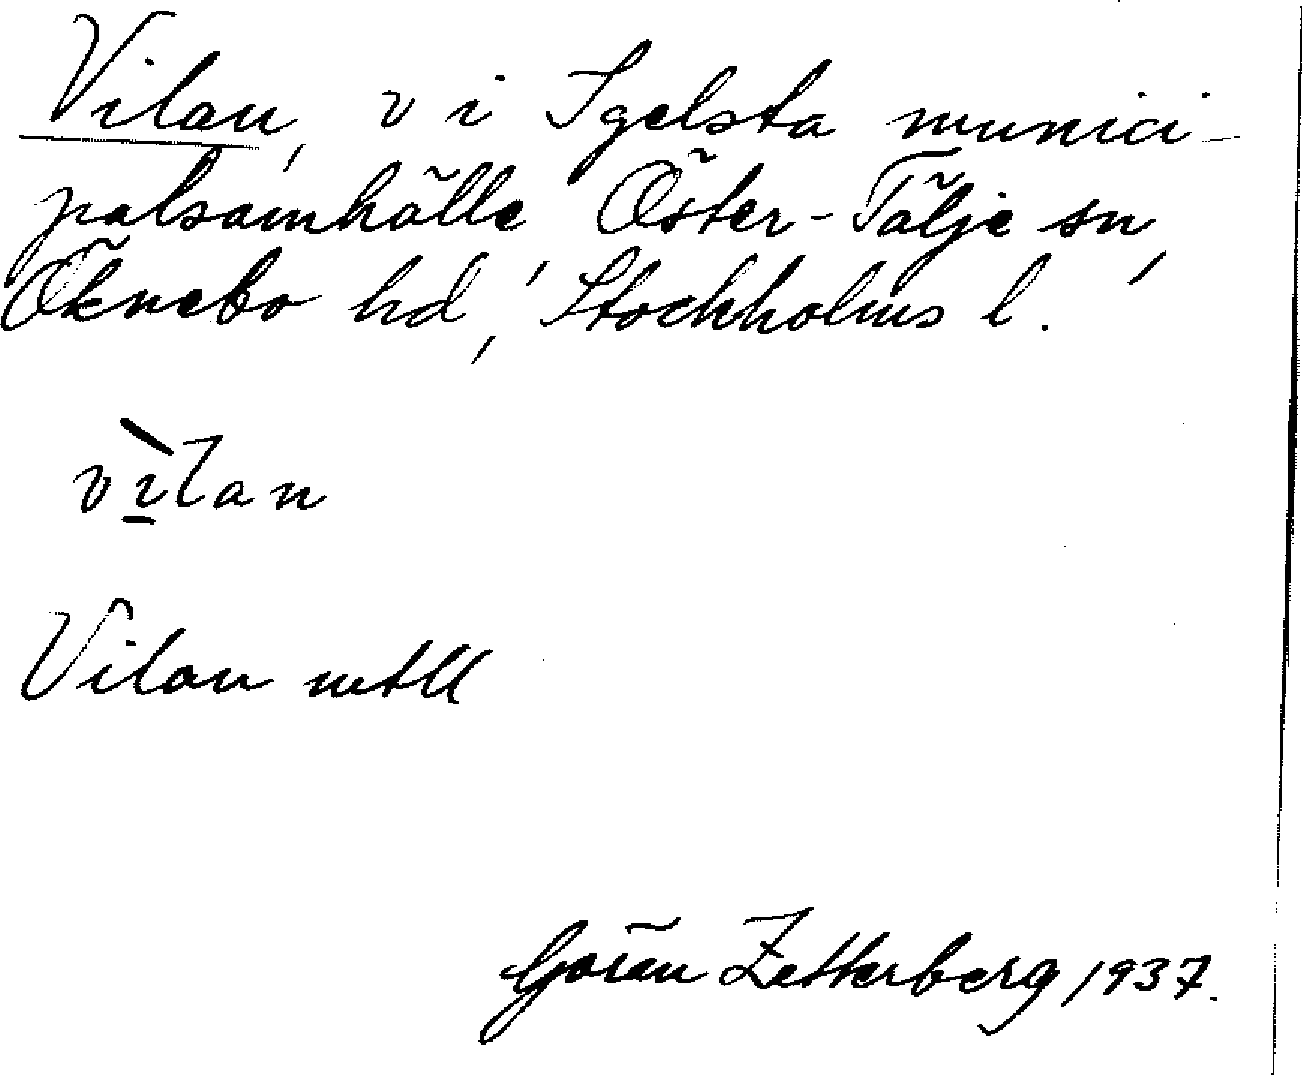 Vilan, v i Igelsta munici-
palsamhälle, Öster-Tälje sn,
Öknebo hd, Stockholms l.
vìlan
Vilan mtll
Göran Zetterberg 1937.